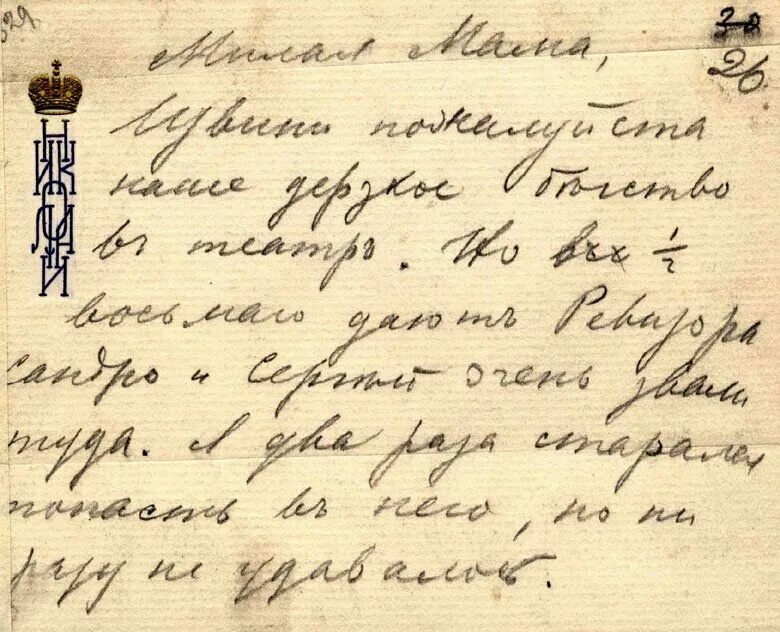 329
32
26
Милая Мама,
Извини пожалуйста
наше дерзкое бѣгство
въ театръ. Но въ ½
восьмаго даютъ Ревизора
Сандро и Сергѣй очень звали
туда. Я два раза старался
попасть въ него, но ни
разу не удавалось.